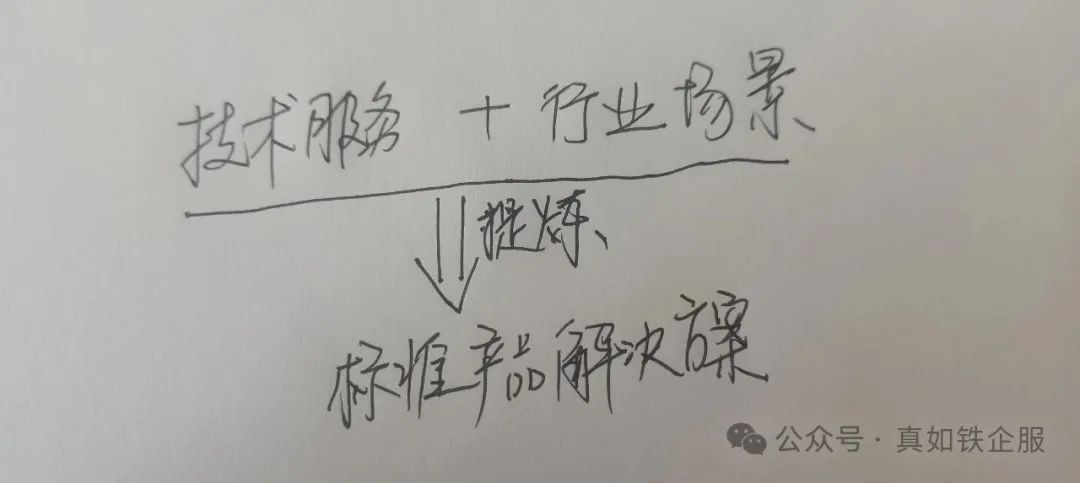 技术服务 + 行业场景
提炼
标准产品解决方案
公众号 · 真如铁企服